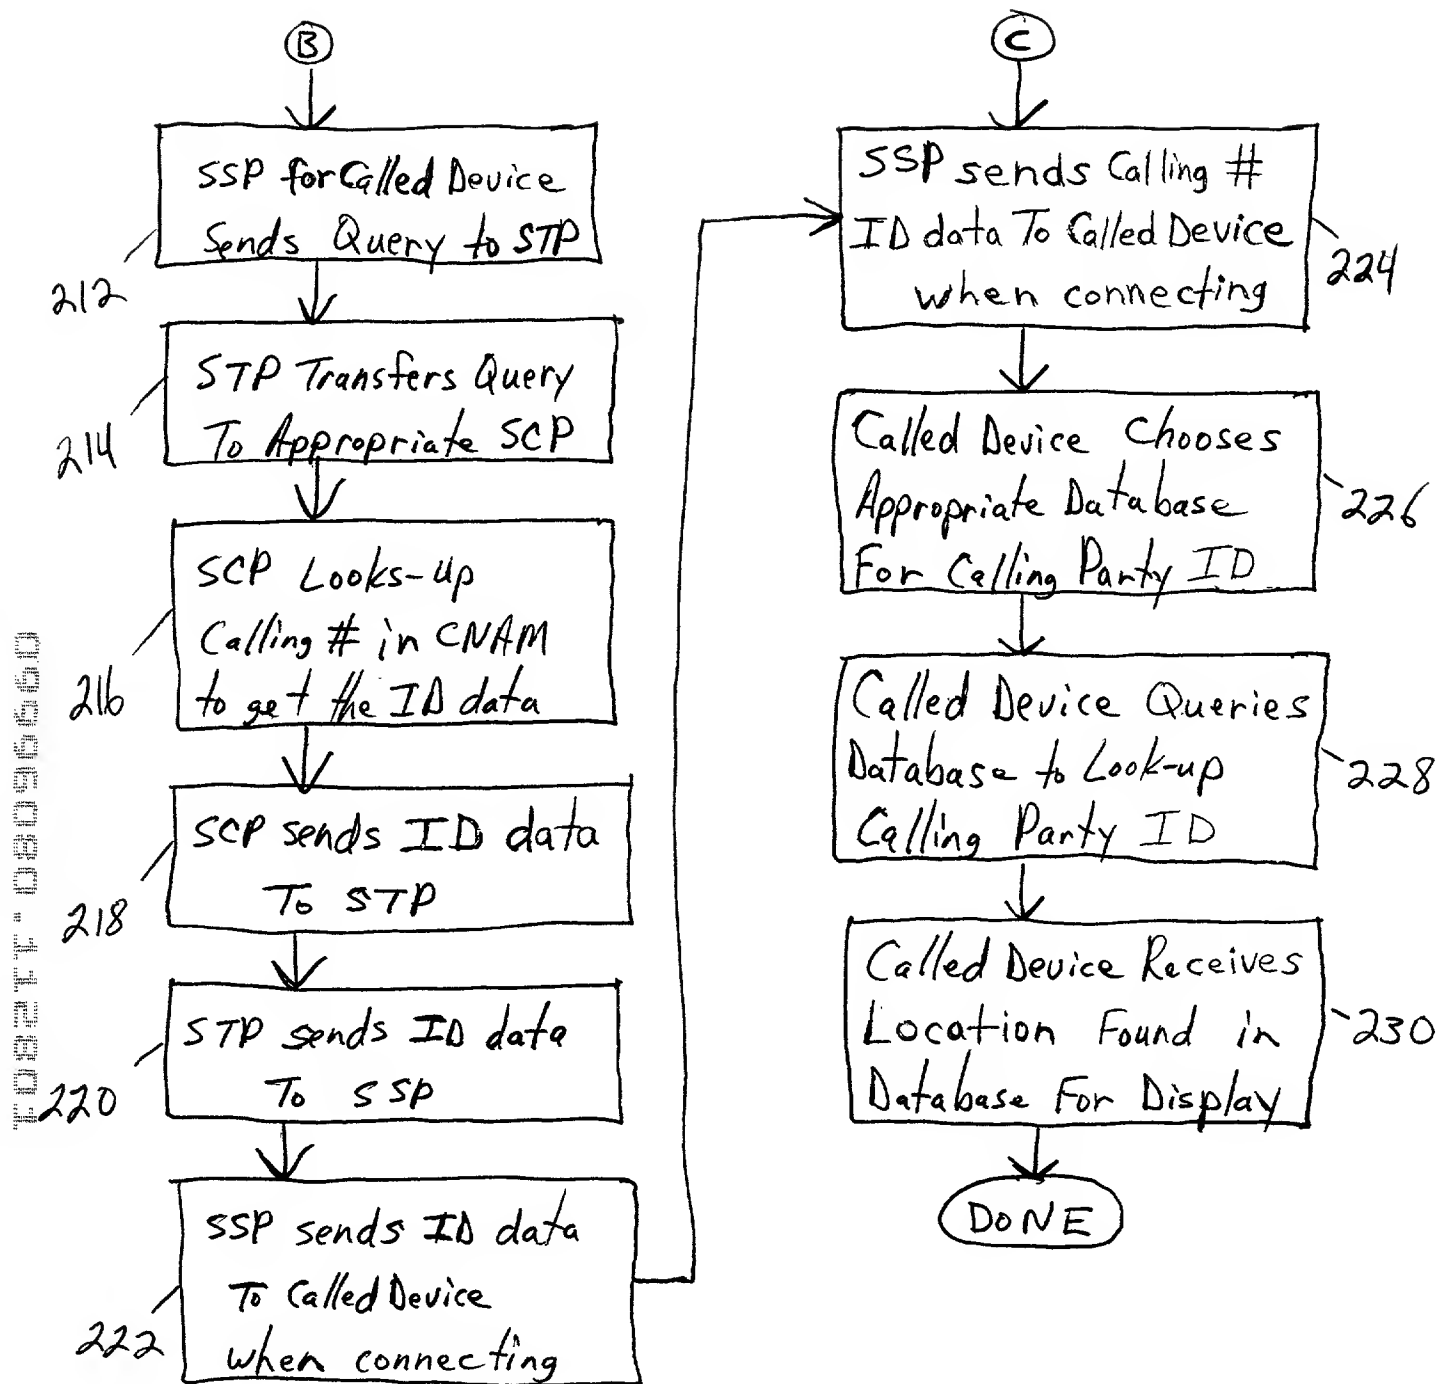 B
SSP for Called Device
Sends Query to STP
212
STP Transfers Query
To Appropriate SCP
214
SCP Looks-up
Calling # in CNAM
to get the ID data
216
SCP sends ID data
To STP
218
STP sends ID data
To SSP
220
SSP sends ID data
To Called Device
when connecting
222
C
SSP sends Calling #
ID data To Called Device
when connecting
224
Called Device Chooses
Appropriate Database
For Calling Party ID
226
Called Device Queries
Database to Look-up
Calling Party ID
228
Called Device Receives
Location Found in
Database For Display
230
DONE